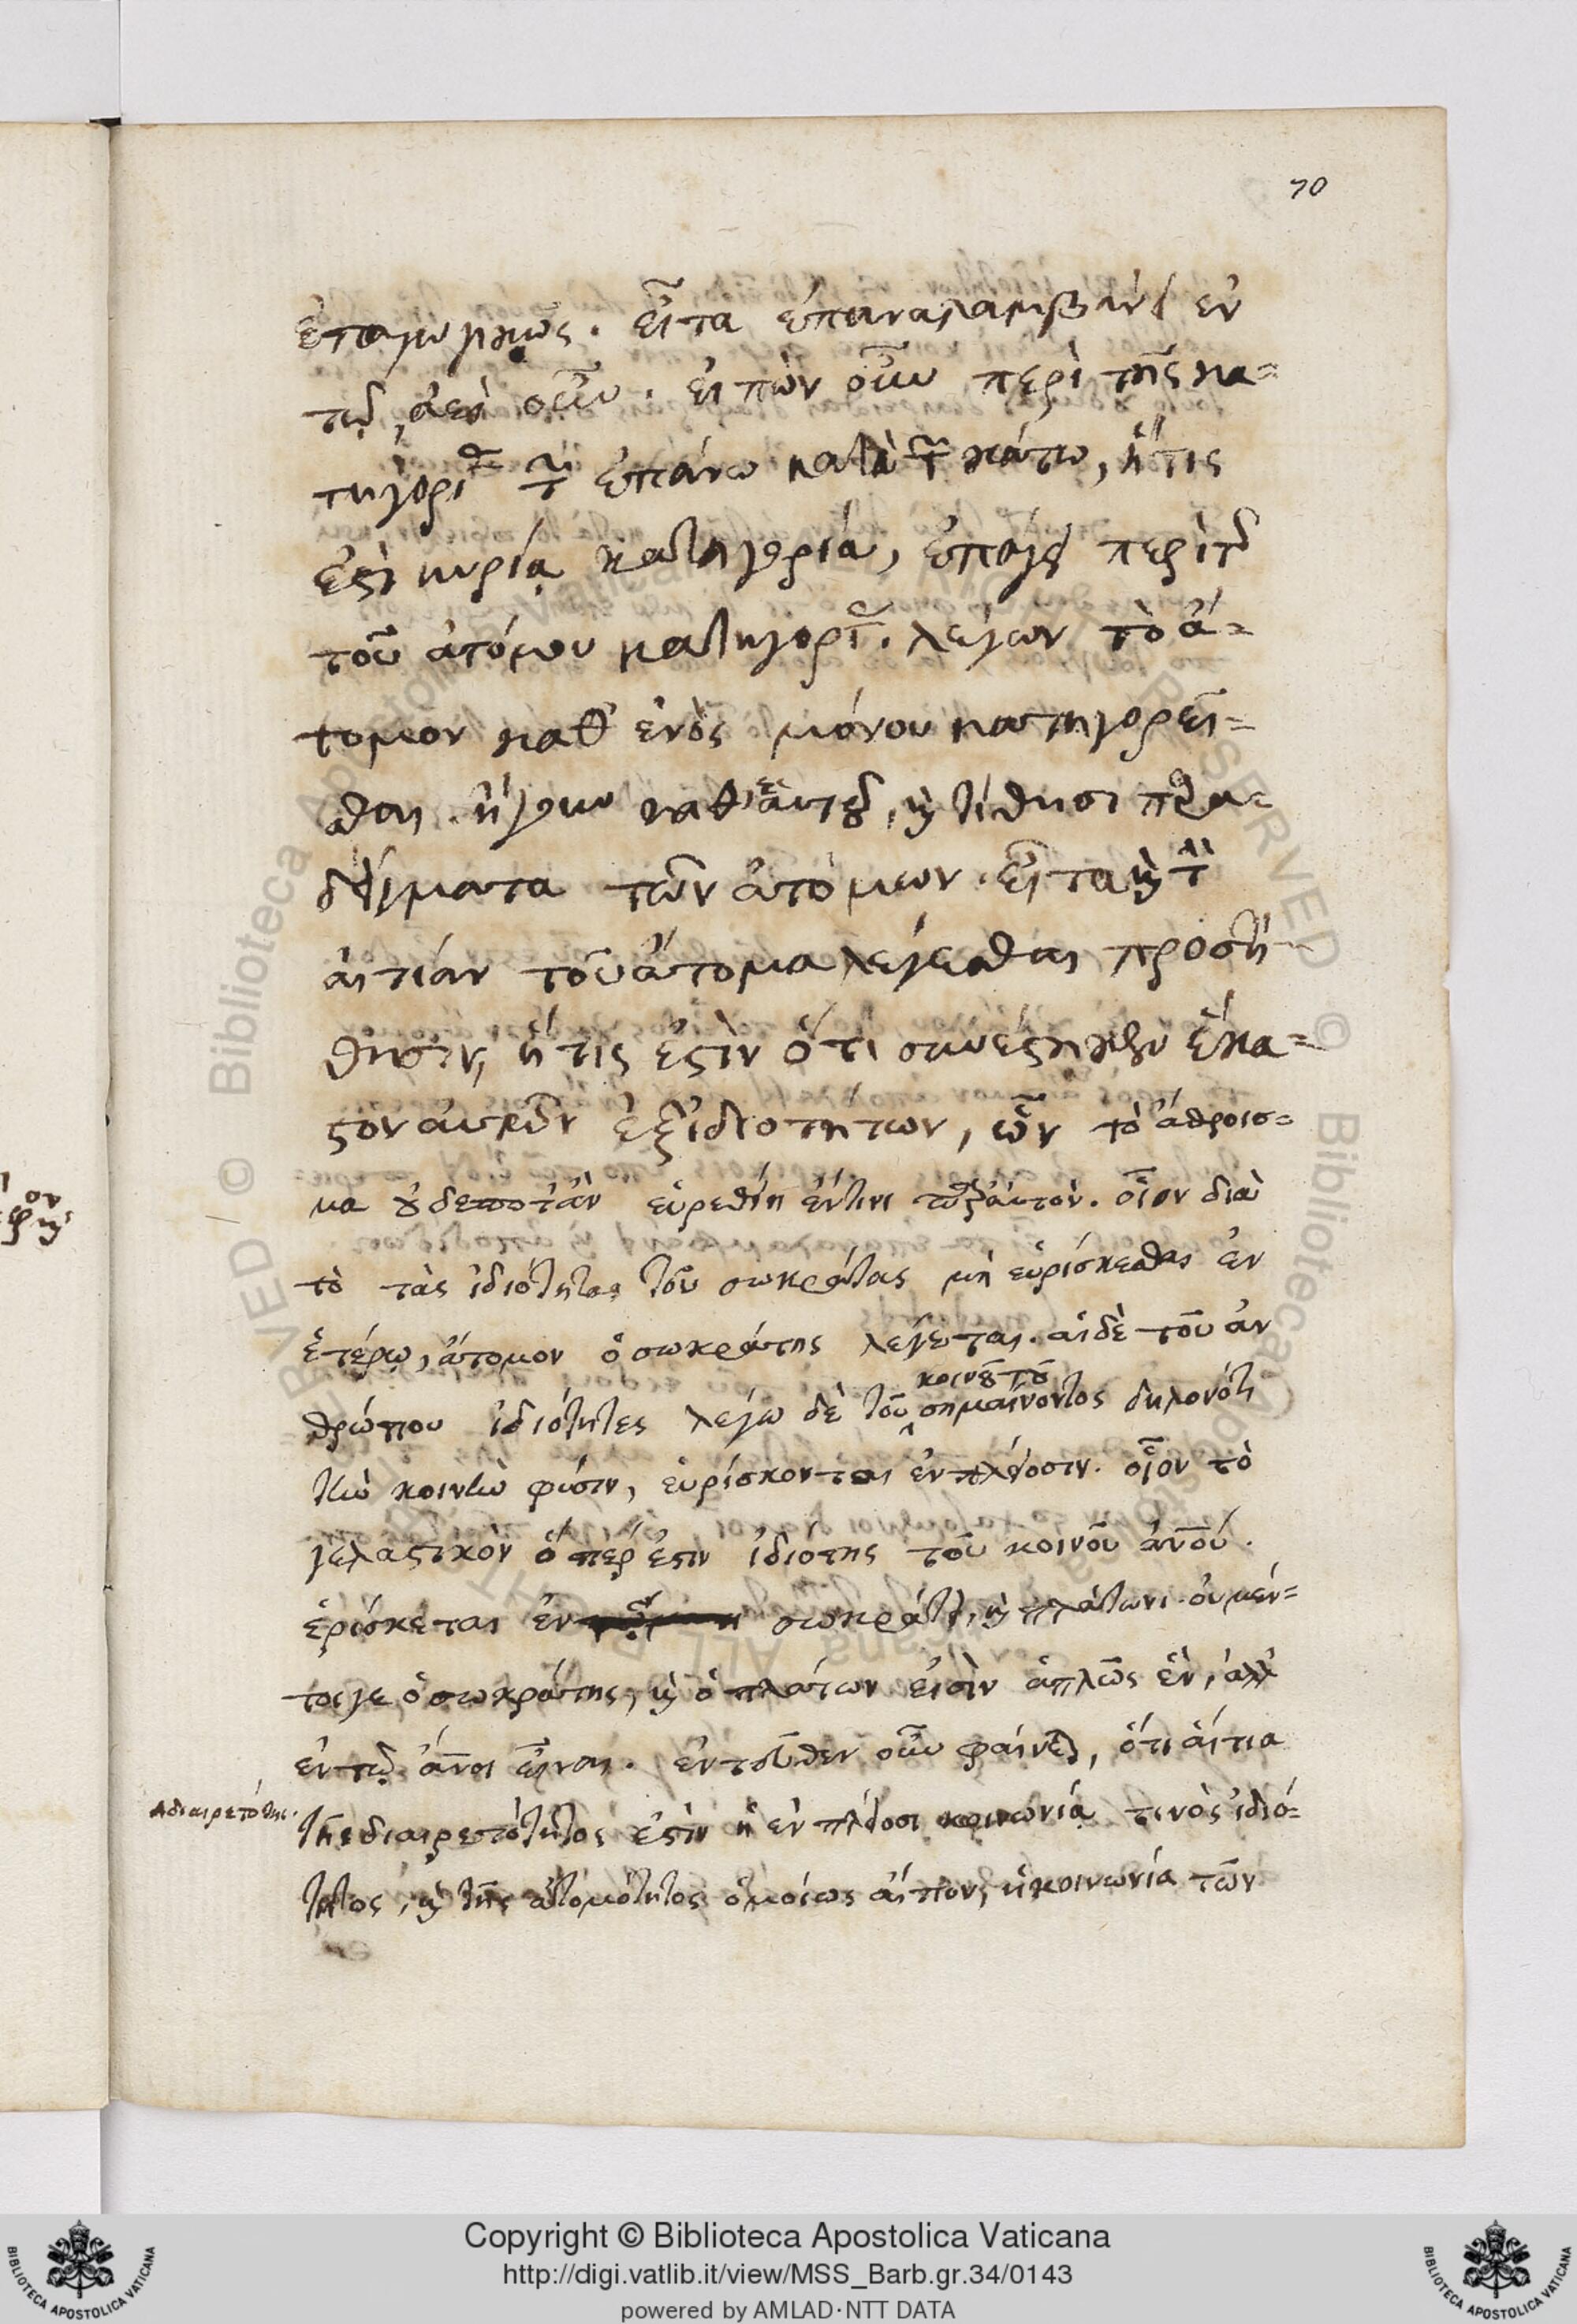 70
ἐπαγωγικῶς. εἶτα ἐπαναλαμβάνει ἐν
τῷ, ἀεὶ οὖν. εἰπὼν οὖν περὶ τῆς κα=
τηγορίας τῶν ἐπάνω κατὰ τῶν κάτω, ἥτις
ἐστὶ κυρία κατηγορία, ἐπάγει περὶ τῆς
τοῦ ἀτόμου κατηγορίας. λέγων τὸ ἄ=
τομον καθ' ἑνὸς μόνου κατηγορεῖ=
σθαι. ἤγουν καθ' ἑαυτοῦ, καὶ τίθησι παρα=
δείγματα τῶν ἀτόμων. εἶτα καὶ τὴν
αἰτίαν τοῦ ἄτομα λέγεσθαι προστί
θησιν, ἥτις ἐστὶν ὅτι συνέστηκεν ἕκα=
στον αὐτῶν ἐξ ἰδιοτήτων, ὧν τὸ ἄθροισ=
μα οὐδέποτ' ἂν εὑρεθείη ἔν τινι τῶν
οἷον διὰ
τὸ τὰς ἰδιότητας τοῦ σωκράτας μὴ εὑρίσκεσθαι ἐν
ἑτέρῳ, ἄτομον ὁ σωκράτης λέγεται. αἱ δὲ τοῦ ἀν
θρώπου ἰδιότητες λέγω δὲ τοῦ κοινοῦ τοῦ σημαίνοντος δηλονότι
τὴν κοινὴν φύσιν, εὑρίσκονται ἐν πλείοσιν. οἷον τὸ
γελαστικὸν ὅπερ ἐστιν ἰδιότης τοῦ κοινοῦ ἀνου.
εὑρίσκεται ἐν σωκράτει, καὶ πλάτωνι. οὐ μέν=
τοιγε ὁ σωκράτης, καὶ ὁ πλάτων εἰσὶν ἁπλῶς ἓν, ἀλλ'
ἐν τῷ ἄνοι εἶναι. ἐντεῦθεν οὖν φαίνεται, ὅτι αἰτία
ἀδιαιρετότης.
τῆς διαιρετότητος ἐστὶν ἡ ἐν πλείοσι κοινωνία τινὸς ἰδιό=
τητος, καὶ τῆς ἀτομότητος ὁμοίως αἴτιον, ἡ κοινωνία τῶν
Copyright © Biblioteca Apostolica Vaticana
http://digi.vatlib.it/view/MSS_Barb.gr.34/0143
powered by AMLAD·NTT DATA